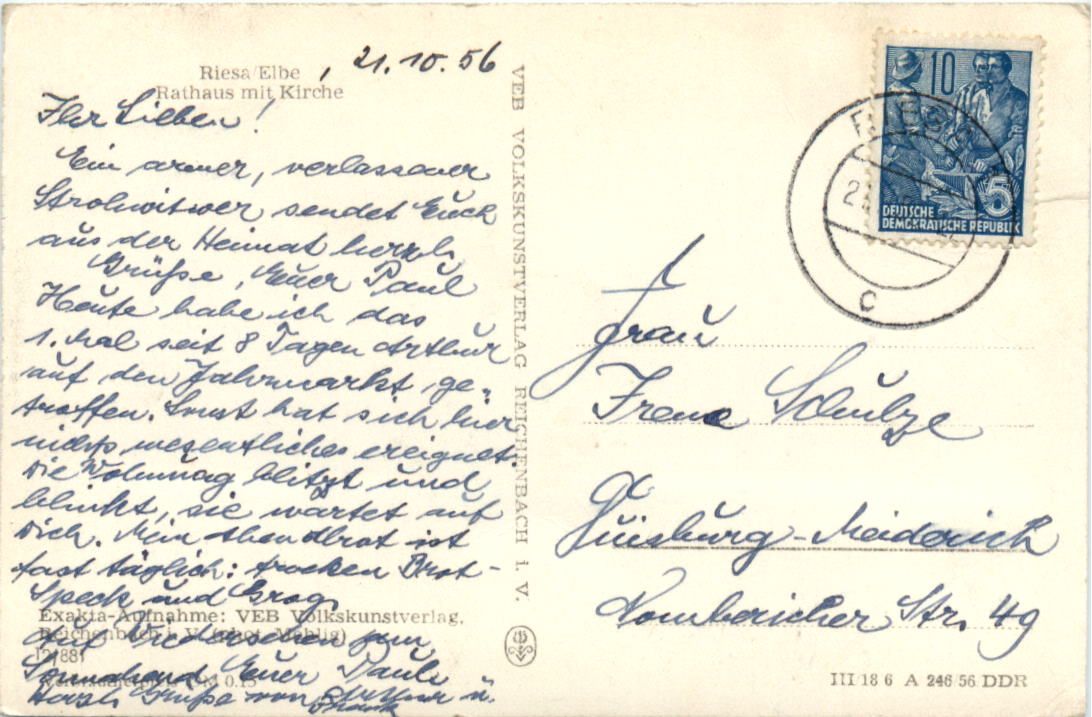 Riesa/Elbe
, 21.10.56
Rathaus mit Kirche
Ihr Lieben!
Ein armer, verlassener
Strohwitwer sendet Euch
aus der Heimat herzl.
Grüße, Euer Paul
Heute habe ich das
1. Mal seit 8 Tagen Arthur
auf den Jahrmarkt ge-
troffen. Sonst hat sich hier
nichts wesentliches ereignet.
Die Wohnung blitzt und
blinkt, sie wartet auf
Dich. Mein Abendbrot ist
fast täglich: trocken Brot-
Speck und Grog
Exakta-Aufnahme: VEB Volkskunstverlag,
Reichenbach i. V.
Auf Wiedersehen zum
12/881
Sonnabend Euer Paul
Herzl. Grüße von Arthur u.
VEB VOLKSKUNSTVERLAG REICHENBACH i. V.
10
5
DEUTSCHE
DEMOKRATISCHE REPUBLIK
RIESA
c
Frau
Irene Schulze
Duisburg-Meiderich
Nombericher Str. 49
III/18 6 A 246/56 DDR